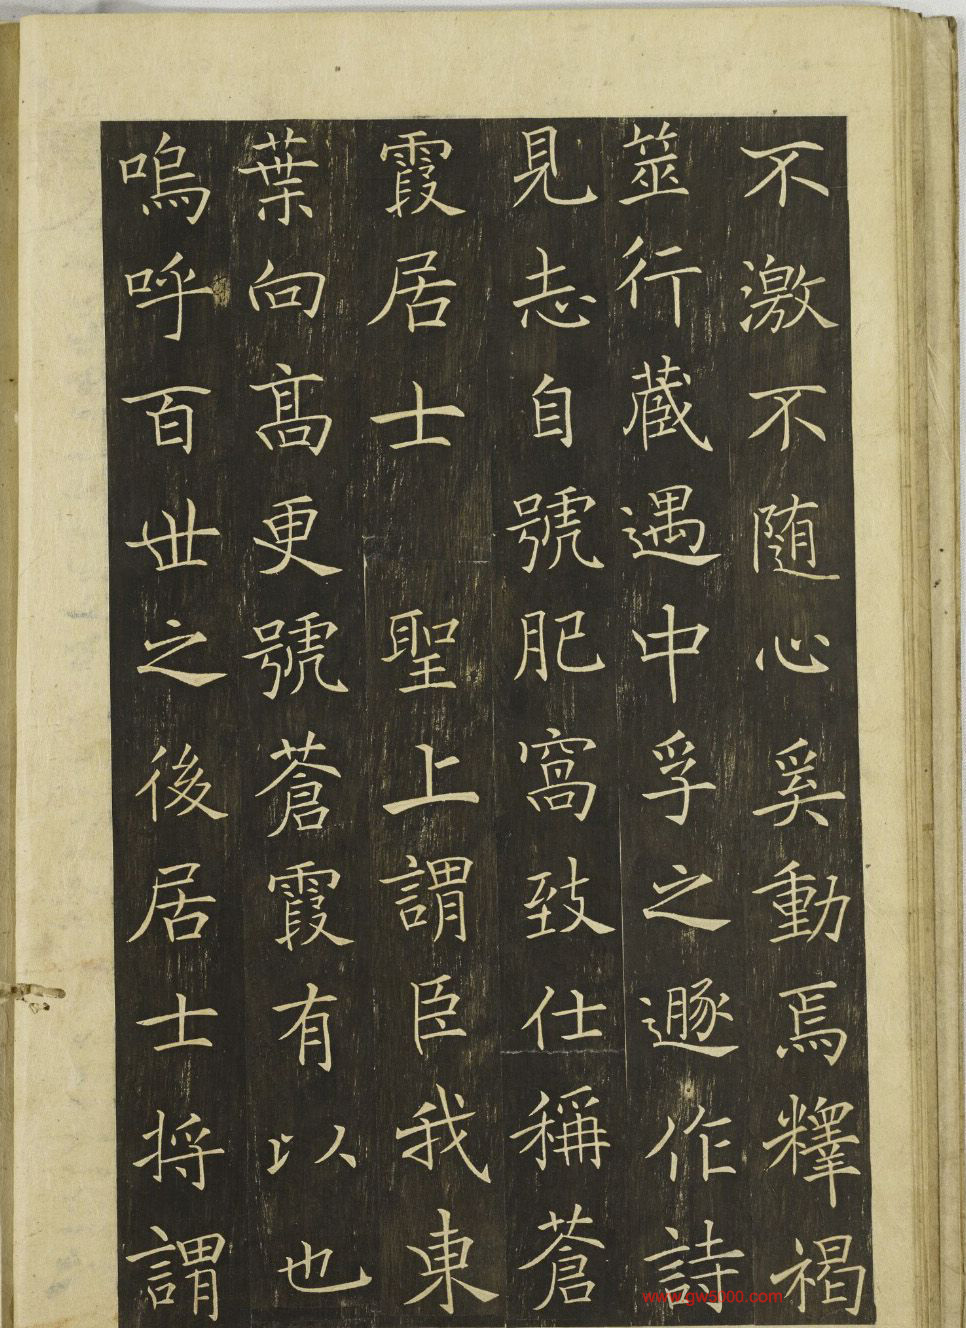 不激不随心奚動焉釋褐
筮行蔵遇中孚之遯作詩
見志自號肥窩致仕稱蒼
霞居士 聖上謂臣我東
葉向髙更號蒼霞有以也
嗚呼百世之後居士将謂
www.gw5000.com